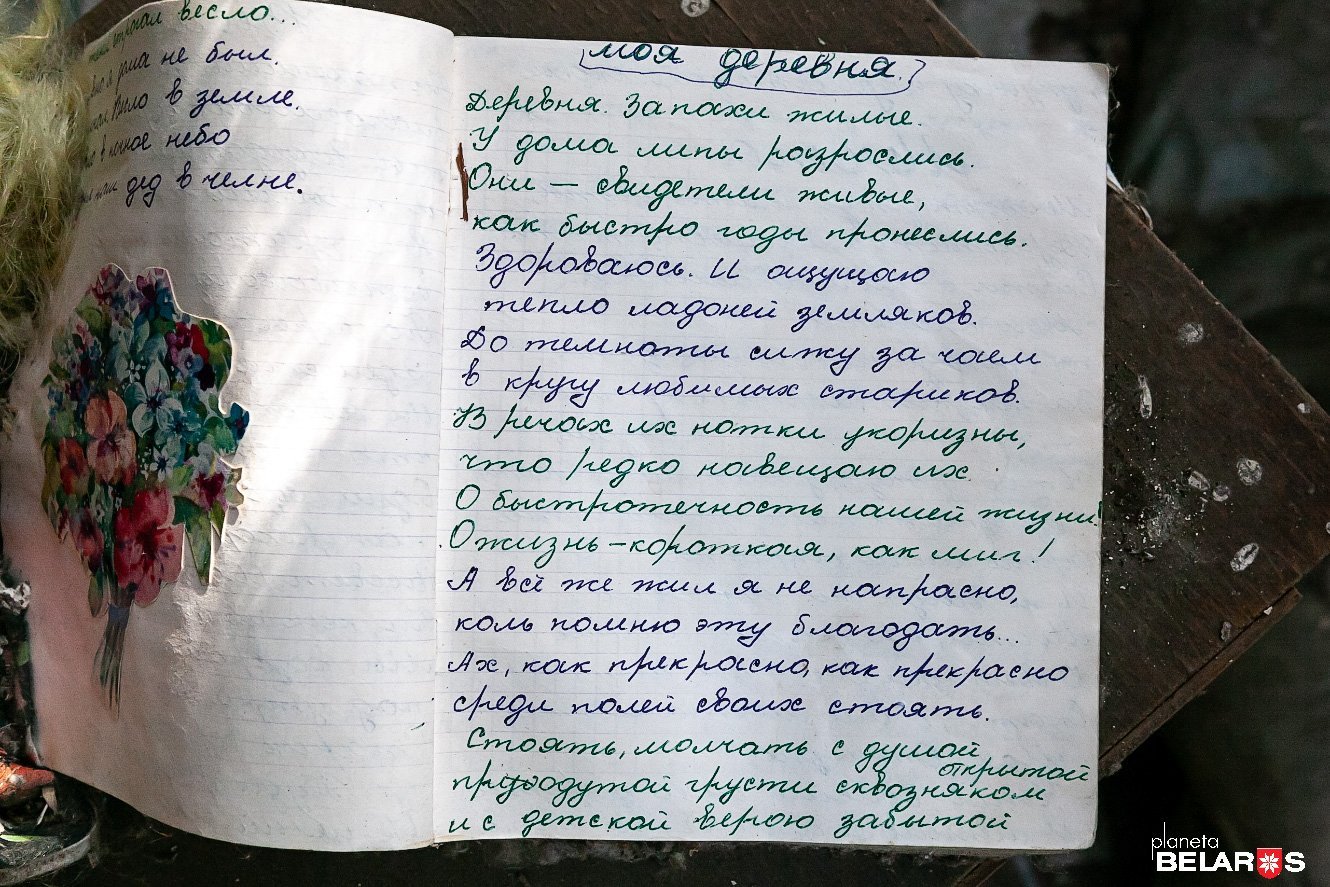 весло...
не был.
в земле.
небо
дед в челне.
моя деревня.
Деревня. Запахи жилые.
У дома липы разрослись.
Они — свидетели живые,
как быстро годы пронеслись.
Здороваюсь. И ощущаю
тепло ладоней земляков.
До темноты сижу за чаем
в кругу любимых стариков.
В речах их нотки укоризны,
что редко навещаю их.
О быстротечность нашей жизни!
О жизнь – короткая, как миг!
А всё же жил я не напрасно,
коль помню эту благодать...
Ах, как прекрасно, как прекрасно
среди полей своих стоять.
Стоять, молчать с душой
открытой
продутой грусти сквозняком
и с детской верою забытой
planeta
BELARUS